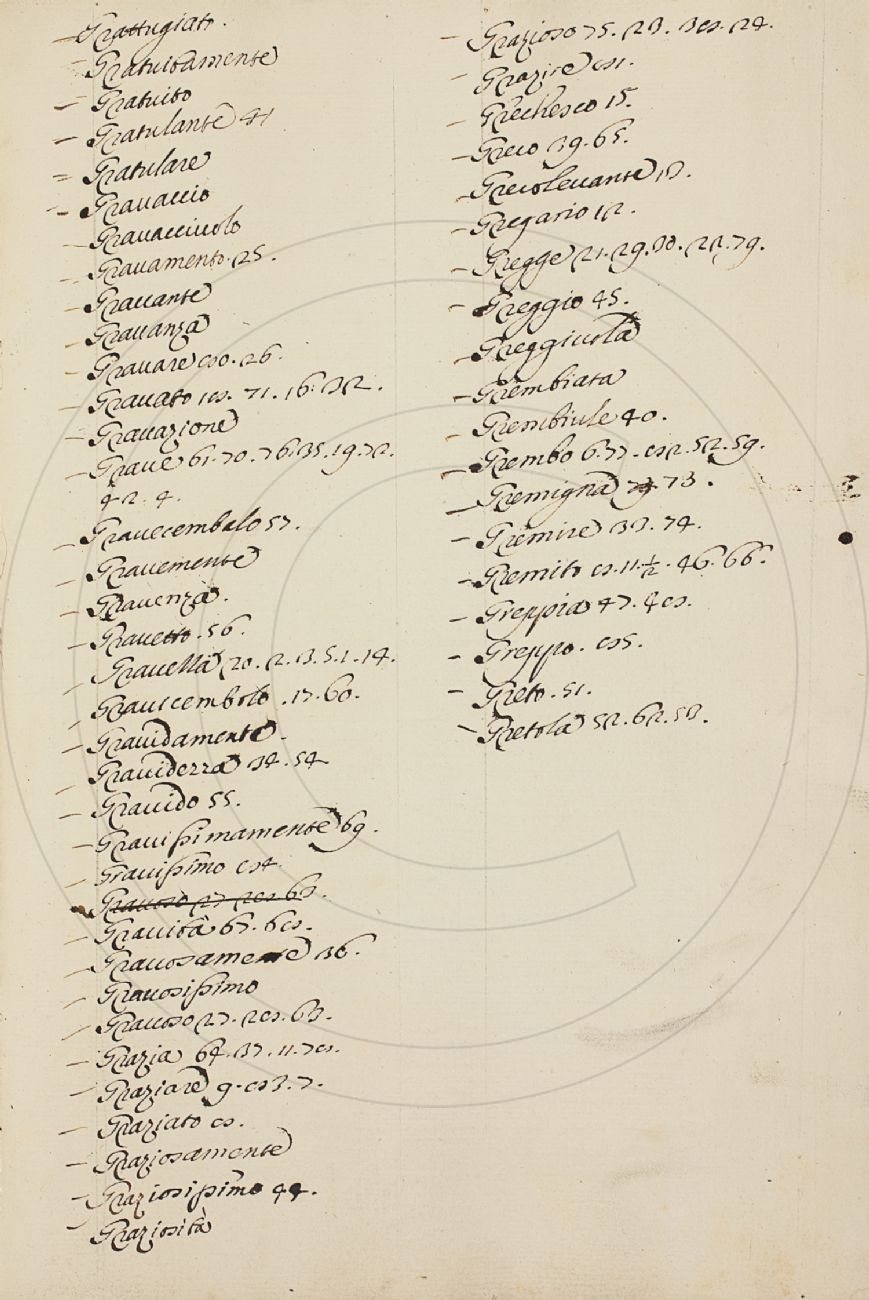 Grattugiato.
Gratuitamente
Gratuito
Gratulante 41
Gratulare
Gravaccio
Gravacciuolo
Gravamento. 25.
Gravante
Gravanza
Gravare 80. 26.
Gravato 18. 71. 16. 32.
Gravazione
Grave 61. 70. 76. 35. 19. 72.
42. 4.
Gravecembalo 57.
Gravemente
Gravenza.
Gravetto. 56.
Gravella 20. 2. 13. 5. 1. 14.
Gravicembolo. 17. 60.
Gravidamente.
Gravidezza 34. 54
Gravido 55.
Gravissimamente 69.
Gravissimo 84
Gravoso 27. 28. 63.
Gravità 67. 68.
Gravosamente 36.
Gravosissimo
Gravoso 27. 28. 63.
Grazia 64. 37. 11. 78.
Graziare 9. 83. 7.
Graziato 8.
Graziosamente
Graziosissimo 44.
Graziosità
Grazioso 75. 23. 38. 24.
Grazire 81.
Grechesco 15.
Greco 39. 65.
Grecolevante 13.
Gregario 12.
Gregge 21. 29. 30. 22. 79.
Greggio 45.
Greggiuola
Grembiata
Grembiule 40.
Grembo 6. 77. 82. 52. 59.
Gremigna 73.
Gremire 33. 74.
Gremito 8. 11. ½. 46. 66.
Greppia 47. 48.
Greppo. 85.
Greto. 51.
Gretola 52. 62. 53.